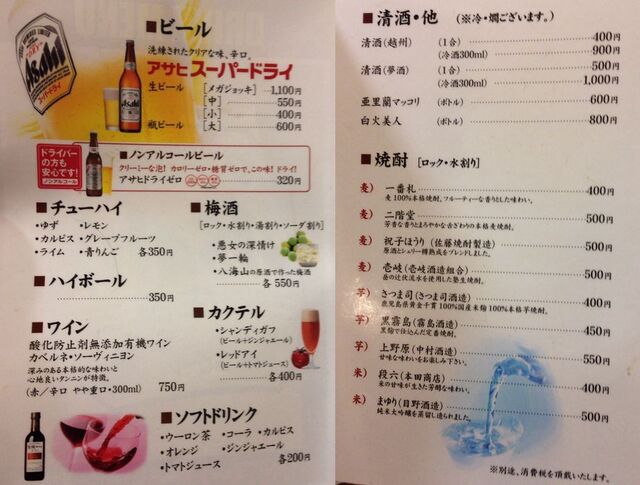 Asahi
スーパードライ
■ビール
洗練されたクリアな味、辛口。
アサヒスーパードライ
生ビール ［メガジョッキ］ 1,100円
［中］ 550円
［小］ 400円
瓶ビール ［大］ 600円
ドライバーの方も安心です!
ノンアルコール
■ノンアルコールビール
クリーミーな泡! カロリーゼロ・糖質ゼロで、この味! ドライ!
アサヒドライゼロ 320円
■チューハイ
・ゆず ・レモン
・カルピス ・グレープフルーツ
・ライム ・青りんご 各350円
■ハイボール
350円
■ワイン
酸化防止剤無添加有機ワイン
カベルネ・ソーヴィニヨン
深みのある本格的な味わいと
心地良いタンニンが特徴。
(赤／辛口 やや重口・300ml) 750円
■梅酒
［ロック・水割り・湯割り・ソーダ割り］
・悪女の深情け
・夢一輪
・八海山の原酒で作った梅酒
各550円
■カクテル
・シャンディガフ
(ビール+ジンジャエール)
・レッドアイ
(ビール+トマトジュース)
各400円
■ソフトドリンク
・ウーロン茶 ・コーラ ・カルピス
・オレンジ ・ジンジャエール
・トマトジュース 各200円
■清酒・他 (※冷・燗ございます。)
清酒(越州) (1合) 400円
(冷酒300ml) 900円
清酒(夢酒) (1合) 500円
(冷酒300ml) 1,000円
亜里蘭マッコリ (ボトル) 600円
白火美人 (ボトル) 800円
■焼酎 ［ロック・水割り］
麦) 一番札 400円
麦100%本格焼酎。フルーティーな香りとした味わい。
麦) 二階堂 500円
芳香な香りとまろやかな舌ざわりの本格麦焼酎。
麦) 祝子ほうり (佐藤焼酎製造) 500円
原酒とシェリー樽熟成をブレンドしました。
麦) 壱岐(壱岐酒造組合) 500円
岳の辻伏流水を使用した麹生焼酎。
芋) さつま司(さつま司酒造) 400円
鹿児島県黄金千貫100%国産米麹100%本格芋焼酎。
芋) 黒霧島(霧島酒造) 450円
黒麹で仕込んだ定番焼酎。
芋) 上野原(中村酒造) 550円
甘味な味わいをお楽しみ下さい。
米) 段六(本田商店) 400円
米の甘味が生きた芳醇な味わい。
米) まゆり(目野酒造) 500円
純米大吟醸を蒸留し造られました。
※別途、消費税を頂戴いたします。